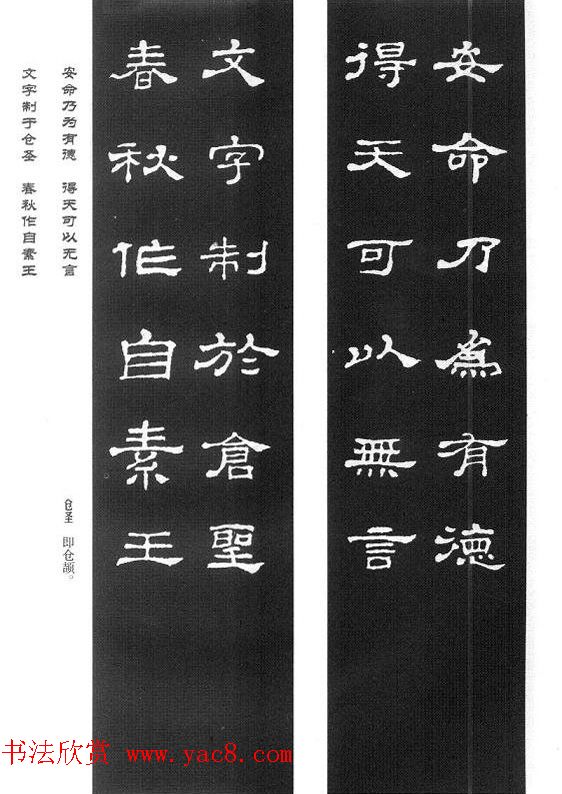 安命乃為有德
得天可以無言
文字制於倉聖
春秋作自素王
安命乃为有德 得天可以无言
文字制于仓圣 春秋作自素王
仓圣 即仓颉。
书法欣赏 www.yac8.com